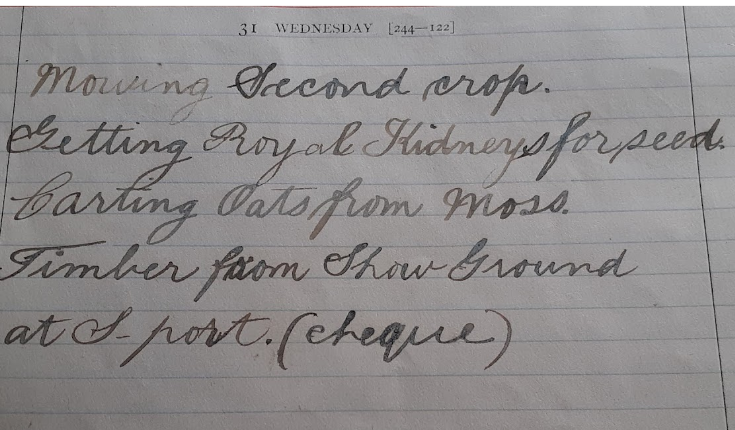 31 WEDNESDAY [244—122]
Mowing Second crop.
Getting Royal Kidneys for seed.
Carting Oats from Moss.
Timber from Show Ground
at S-port. (cheque)